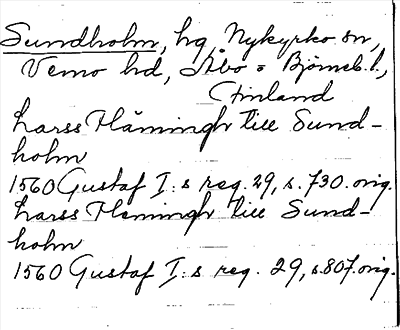 Sundholm, hg, Nykyrko sn,
Vemo hd, Åbo = Björneb. l.,
Finland
Larss Häminghr till Sund-
holm
1560 Gustaf I:s reg. 29, s. 730. orig.
Larss Hemingh till Sund-
holm
1560 Gustaf I:s reg. 29, s. 807. orig.